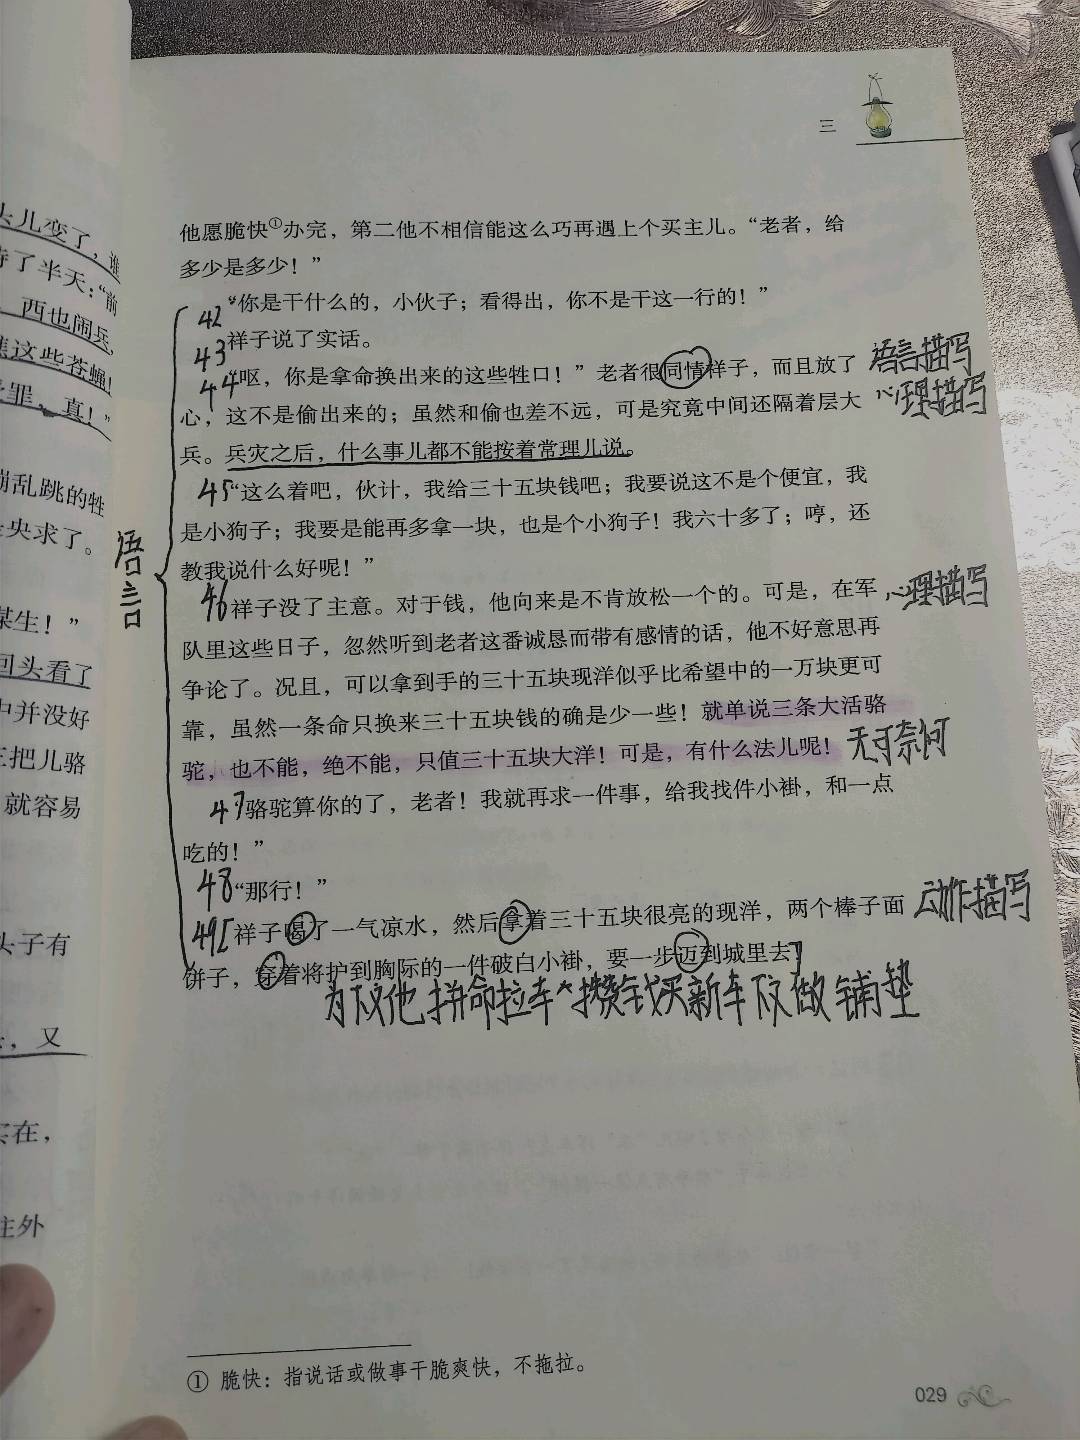 头儿变了，谁
待了半天：“前
，西也闹兵，
瞧这些苍蝇！
受罪、真！”
蹦乱跳的牲
央求了。
谋生！”
回头看了
中并没好
把儿骆
就容易
头子有
，又
实在，
往外
三
他愿脆快①办完，第二他不相信能这么巧再遇上个买主儿。“老者，给
多少是多少！”
42 “你是干什么的，小伙子；看得出，你不是干这一行的！”
43 祥子说了实话。
44 “呕，你是拿命换出来的这些牲口！”老者很同情祥子，而且放了 语言描写
心，这不是偷出来的；虽然和偷也差不远，可是究竟中间还隔着层大 心理描写
兵。兵灾之后，什么事儿都不能按着常理儿说。
45 “这么着吧，伙计，我给三十五块钱吧；我要说这不是个便宜，我
是小狗子；我要是能再多拿一块，也是个小狗子！我六十多了；哼，还
教我说什么好呢！”
语言
46 祥子没了主意。对于钱，他向来是不肯放松一个的。可是，在军 心理描写
队里这些日子，忽然听到老者这番诚恳而带有感情的话，他不好意思再
争论了。况且，可以拿到手的三十五块现洋似乎比希望中的一万块更可
靠，虽然一条命只换来三十五块钱的确是少一些！就单说三条大活骆
驼，也不能，绝不能，只值三十五块大洋！可是，有什么法儿呢！ 无可奈何
47 骆驼算你的了，老者！我就再求一件事，给我找件小褂，和一点
吃的！”
48 “那行！”
49 祥子喝了一气凉水，然后拿着三十五块很亮的现洋，两个棒子面 动作描写
饼子，穿着将护到胸际的一件破白小褂，要一步迈到城里去！
为下文他拼命拉车攒钱买新车下文做铺垫
① 脆快：指说话或做事干脆爽快，不拖拉。
029